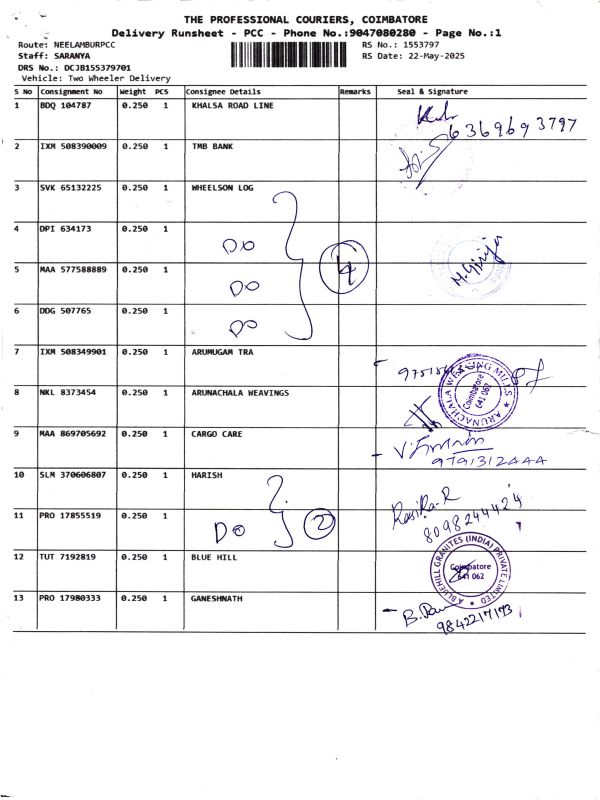 THE PROFESSIONAL COURIERS, COIMBATORE
Delivery Runsheet - PCC - Phone No.:9047080280 - Page No.:1
Route: NEELAMBURPCC RS No.: 1553797
Staff: SARANYA RS Date: 22-May-2025
DRS No.: DCJB155379701
Vehicle: Two Wheeler Delivery
S No Consignment No Weight PCS Consignee Details Remarks Seal & Signature
1 BDQ 104787 0.250 1 KHALSA ROAD LINE
6369693797
2 IXM 508390009 0.250 1 TMB BANK
3 SVK 65132225 0.250 1 WHEELSON LOG
4 DPI 634173 0.250 1 Do 4
5 MAA 577588889 0.250 1 Do
6 DDG 507765 0.250 1 Do
7 IXM 508349901 0.250 1 ARUMUGAM TRA
8 NKL 8373454 0.250 1 ARUNACHALA WEAVINGS
ARUNACHALA WEAVING MILLS
Coimbatore
641 062
9 MAA 869705692 0.250 1 CARGO CARE
9791312444
10 SLM 370606807 0.250 1 HARISH
RasiKa-R
8098244424
11 PRO 17855519 0.250 1 Do 2
12 TUT 7192819 0.250 1 BLUE HILL
BLUEHILL GRANITES (INDIA) PRIVATE LIMITED
Coimbatore
641 062
13 PRO 17980333 0.250 1 GANESHNATH
9842217173